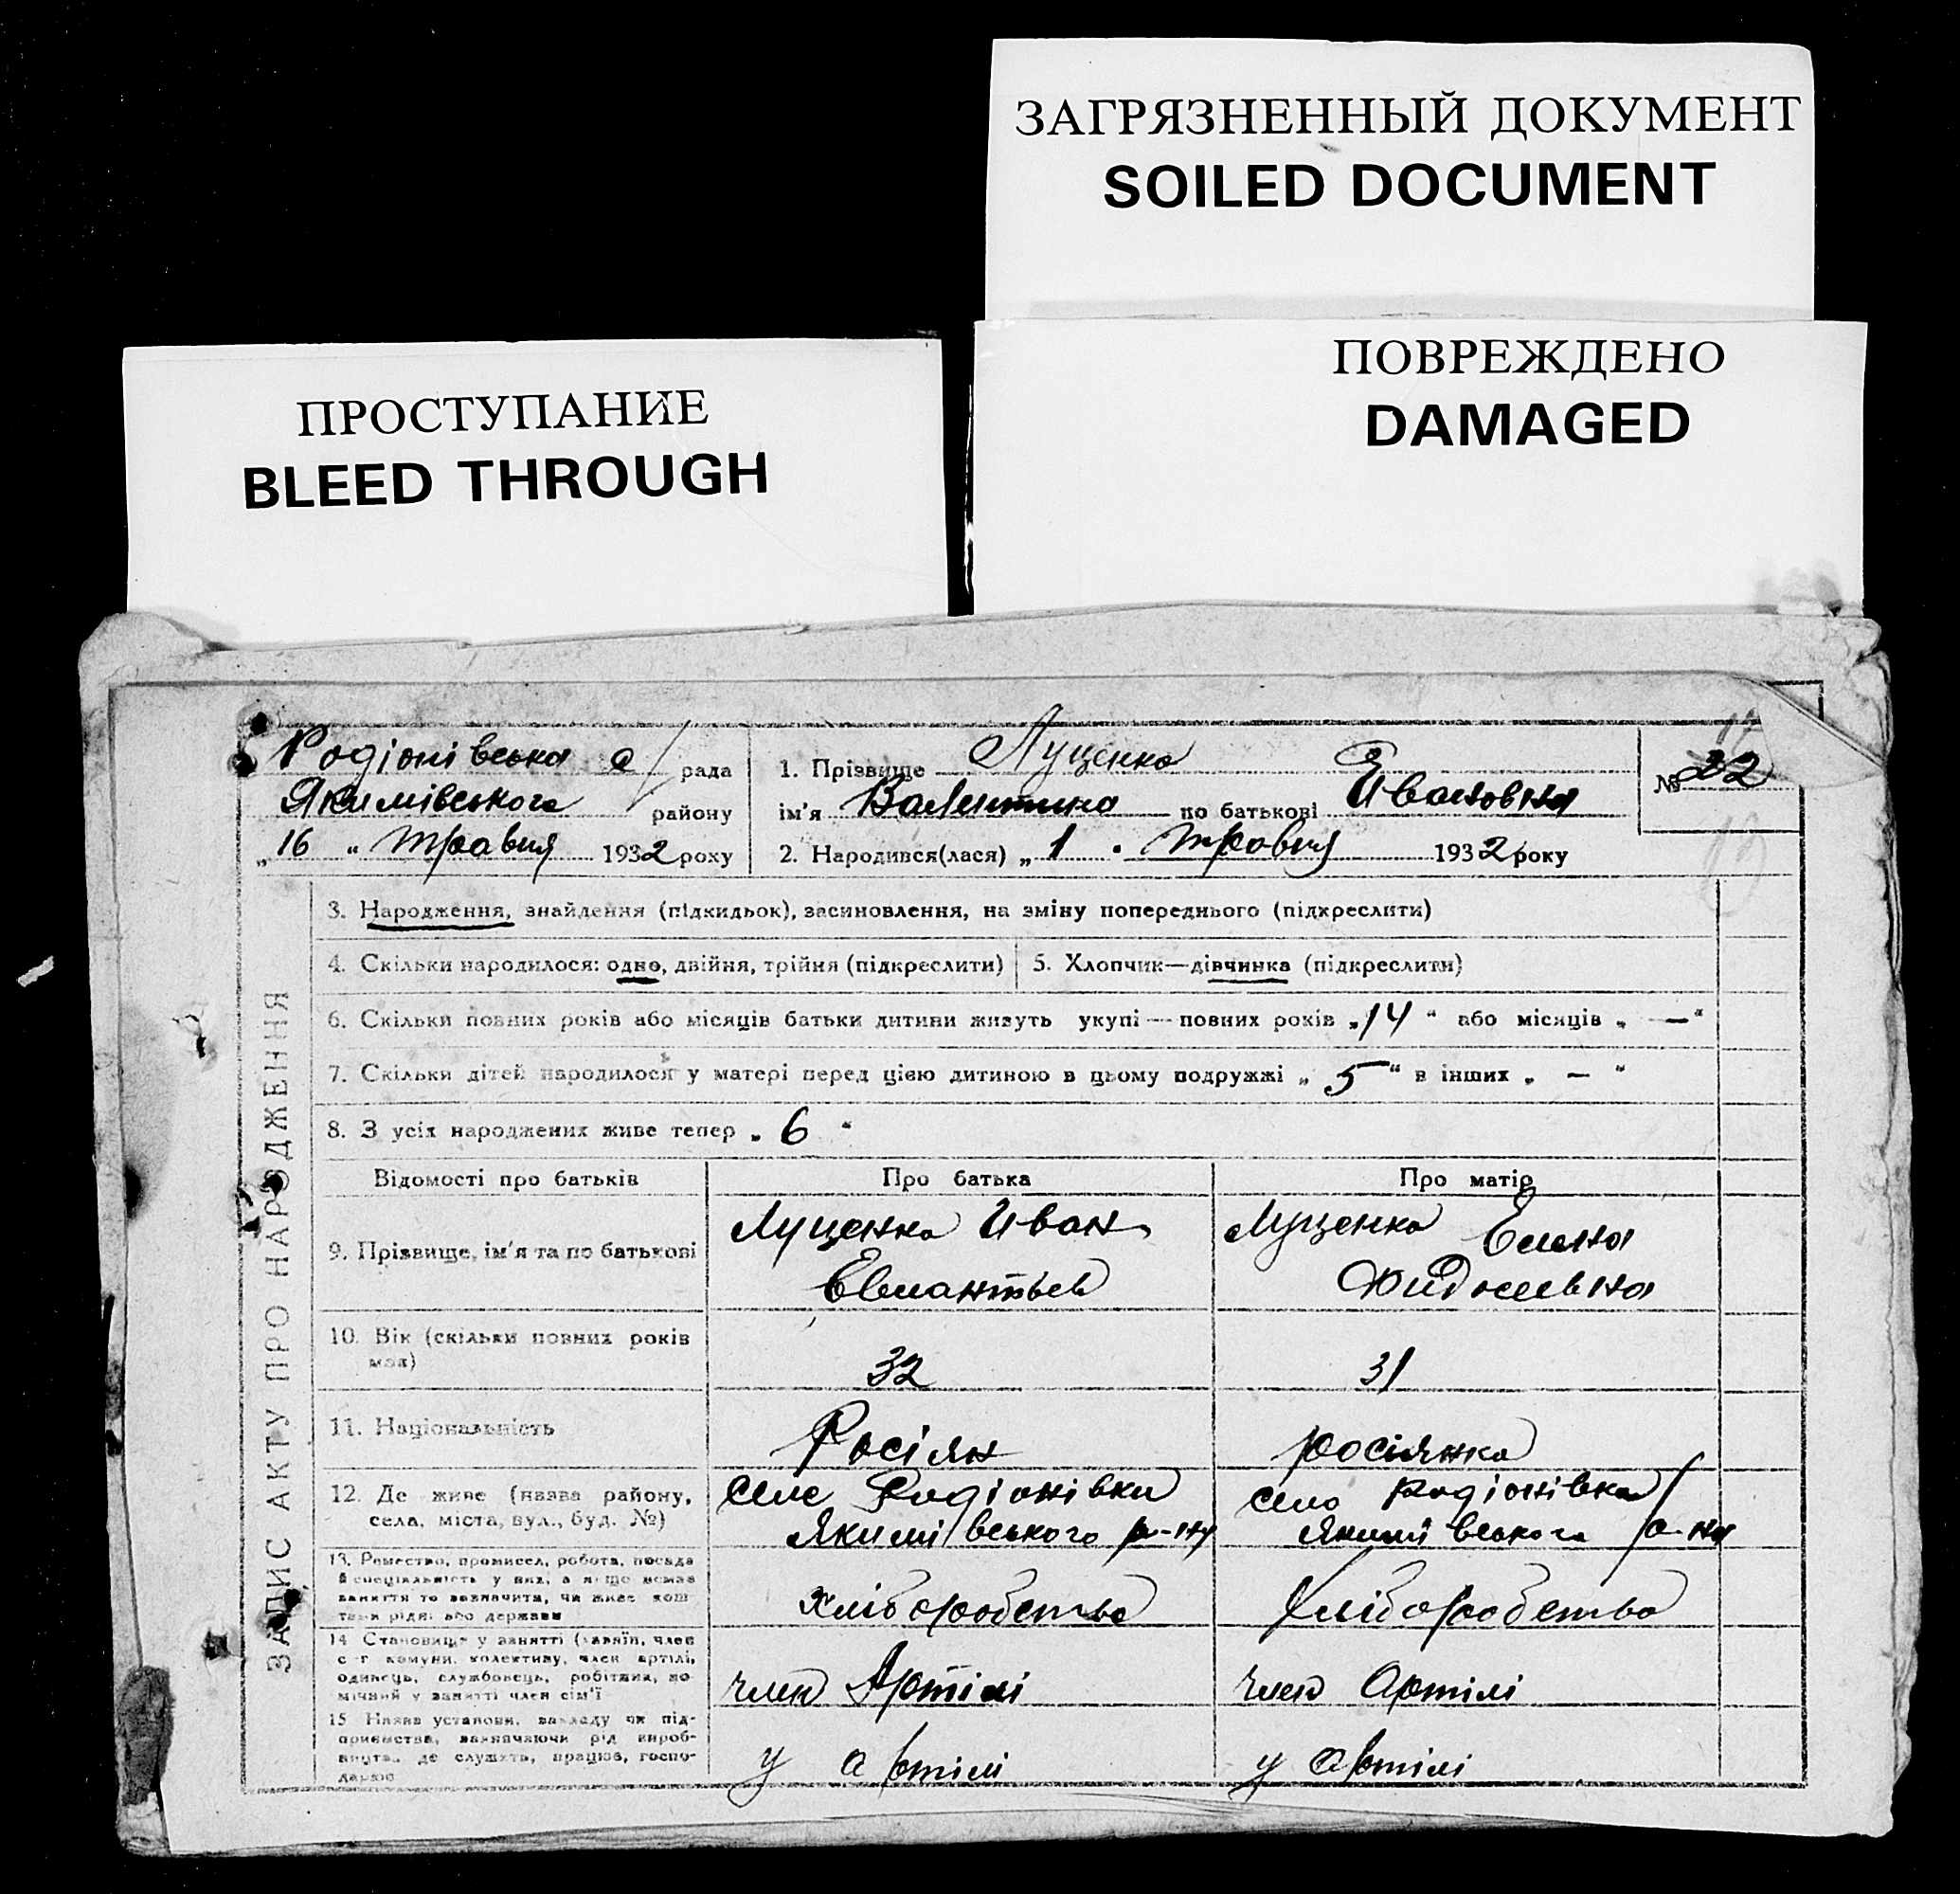 ЗАГРЯЗНЕННЫЙ ДОКУМЕНТ
SOILED DOCUMENT
ПРОСТУПАНИЕ
BLEED THROUGH
ПОВРЕЖДЕНО
DAMAGED
Родіонівська с/рада
Якимівського району
„16“ травня 1932 року
1. Прізвище Луценко
ім'я Валентина по батькові Ивановна
2. Народився(лася) „1 . травня 1932 року
№ 22
ЗАПИС АКТУ ПРО НАРОДЖЕННЯ
3. Народження, знайдення (підкидьок), засиновлення, на зміну попереднього (підкреслити)
4. Скільки народилося: одно, двійня, трійня (підкреслити)
5. Хлопчик—дівчинка (підкреслити)
6. Скільки повних років або місяців батьки дитини живуть укупі — повних років „14“ або місяців „ —“
7. Скільки дітей народилося у матері перед цією дитиною в цьому подружжі „ 5 “ в інших „ — “
8. З усіх народжених живе тепер „ 6 “
Відомості про батьків Про батька Про матір
9. Прізвище, ім'я та по батькові
Луценко Иван
Луценко Елена
10. Вік (скільки повних років має)
32
31
11. Національність
Росіян
росіянка
12. Де живе (назва району,
села, міста, вул., буд. №)
Село Родіонівки
Якимівського р-ну
село Родіонівка
Якимівського р-на
13. Ремество, промисел, робота, посада
й спеціальність у них, а якщо немає
заняття то зазначити, чи живе кош
тами рідні або держави
хліборобство
хліборобство
14 Становище у занятті (хазяїн, член
с-г комуни, колективу, член артілі,
одинець, службовець, робітник, по
мічний у занятті член сім'ї
член Артілі
член Артілі
15 Назва установи, закладу чи під-
приємства, зазначаючи рід вироб-
ництва, де служить, працює, госпо-
дарює
у артілі
у артілі